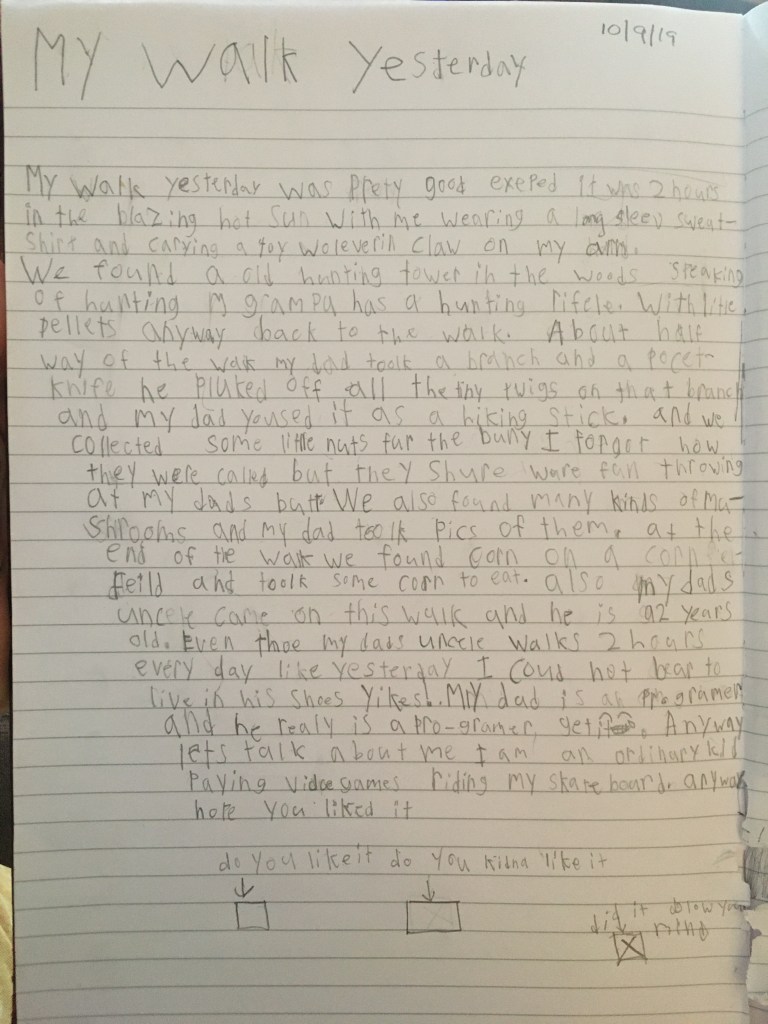 10/9/19
My walk yesterday
My walk yesterday was prety good exeped it was 2 hours
in the blazing hot sun with me wearing a long sleev sweat-
shirt and carying a toy woleverin claw on my arm.
We found a old hunting tower in the woods speaking
of hunting my grampa has a hunting rifcle. With litle
pellets anyway back to the walk. About half
way of the walk my dad toolk a branch and a pocet-
knife he pluked off all the tiny twigs on that branch
and my dad yoused it as a hiking stick. and we
collected some little nuts fur the buny I forgor how
they were called but they shure ware fun throwing
at my dads butt. We also found many kinds of mu-
shrooms and my dad toolk pics of them. at the
end of the walk we found corn on a corn
feild and toolk some corn to eat. also my dads
uncele came on this walk and he is 92 years
old. Even thoe my dads uncele walks 2 hours
every day like yesterday I coud not bear to
live in his shoes yikes!.. My dad is an programer
and he realy is a pro-gramer, get it. Anyway
lets talk about me I am an ordinary kid
paying video games riding my skateboard. anyway
hope you liked it
do you like it do you kidna like it
did it blow your
mind